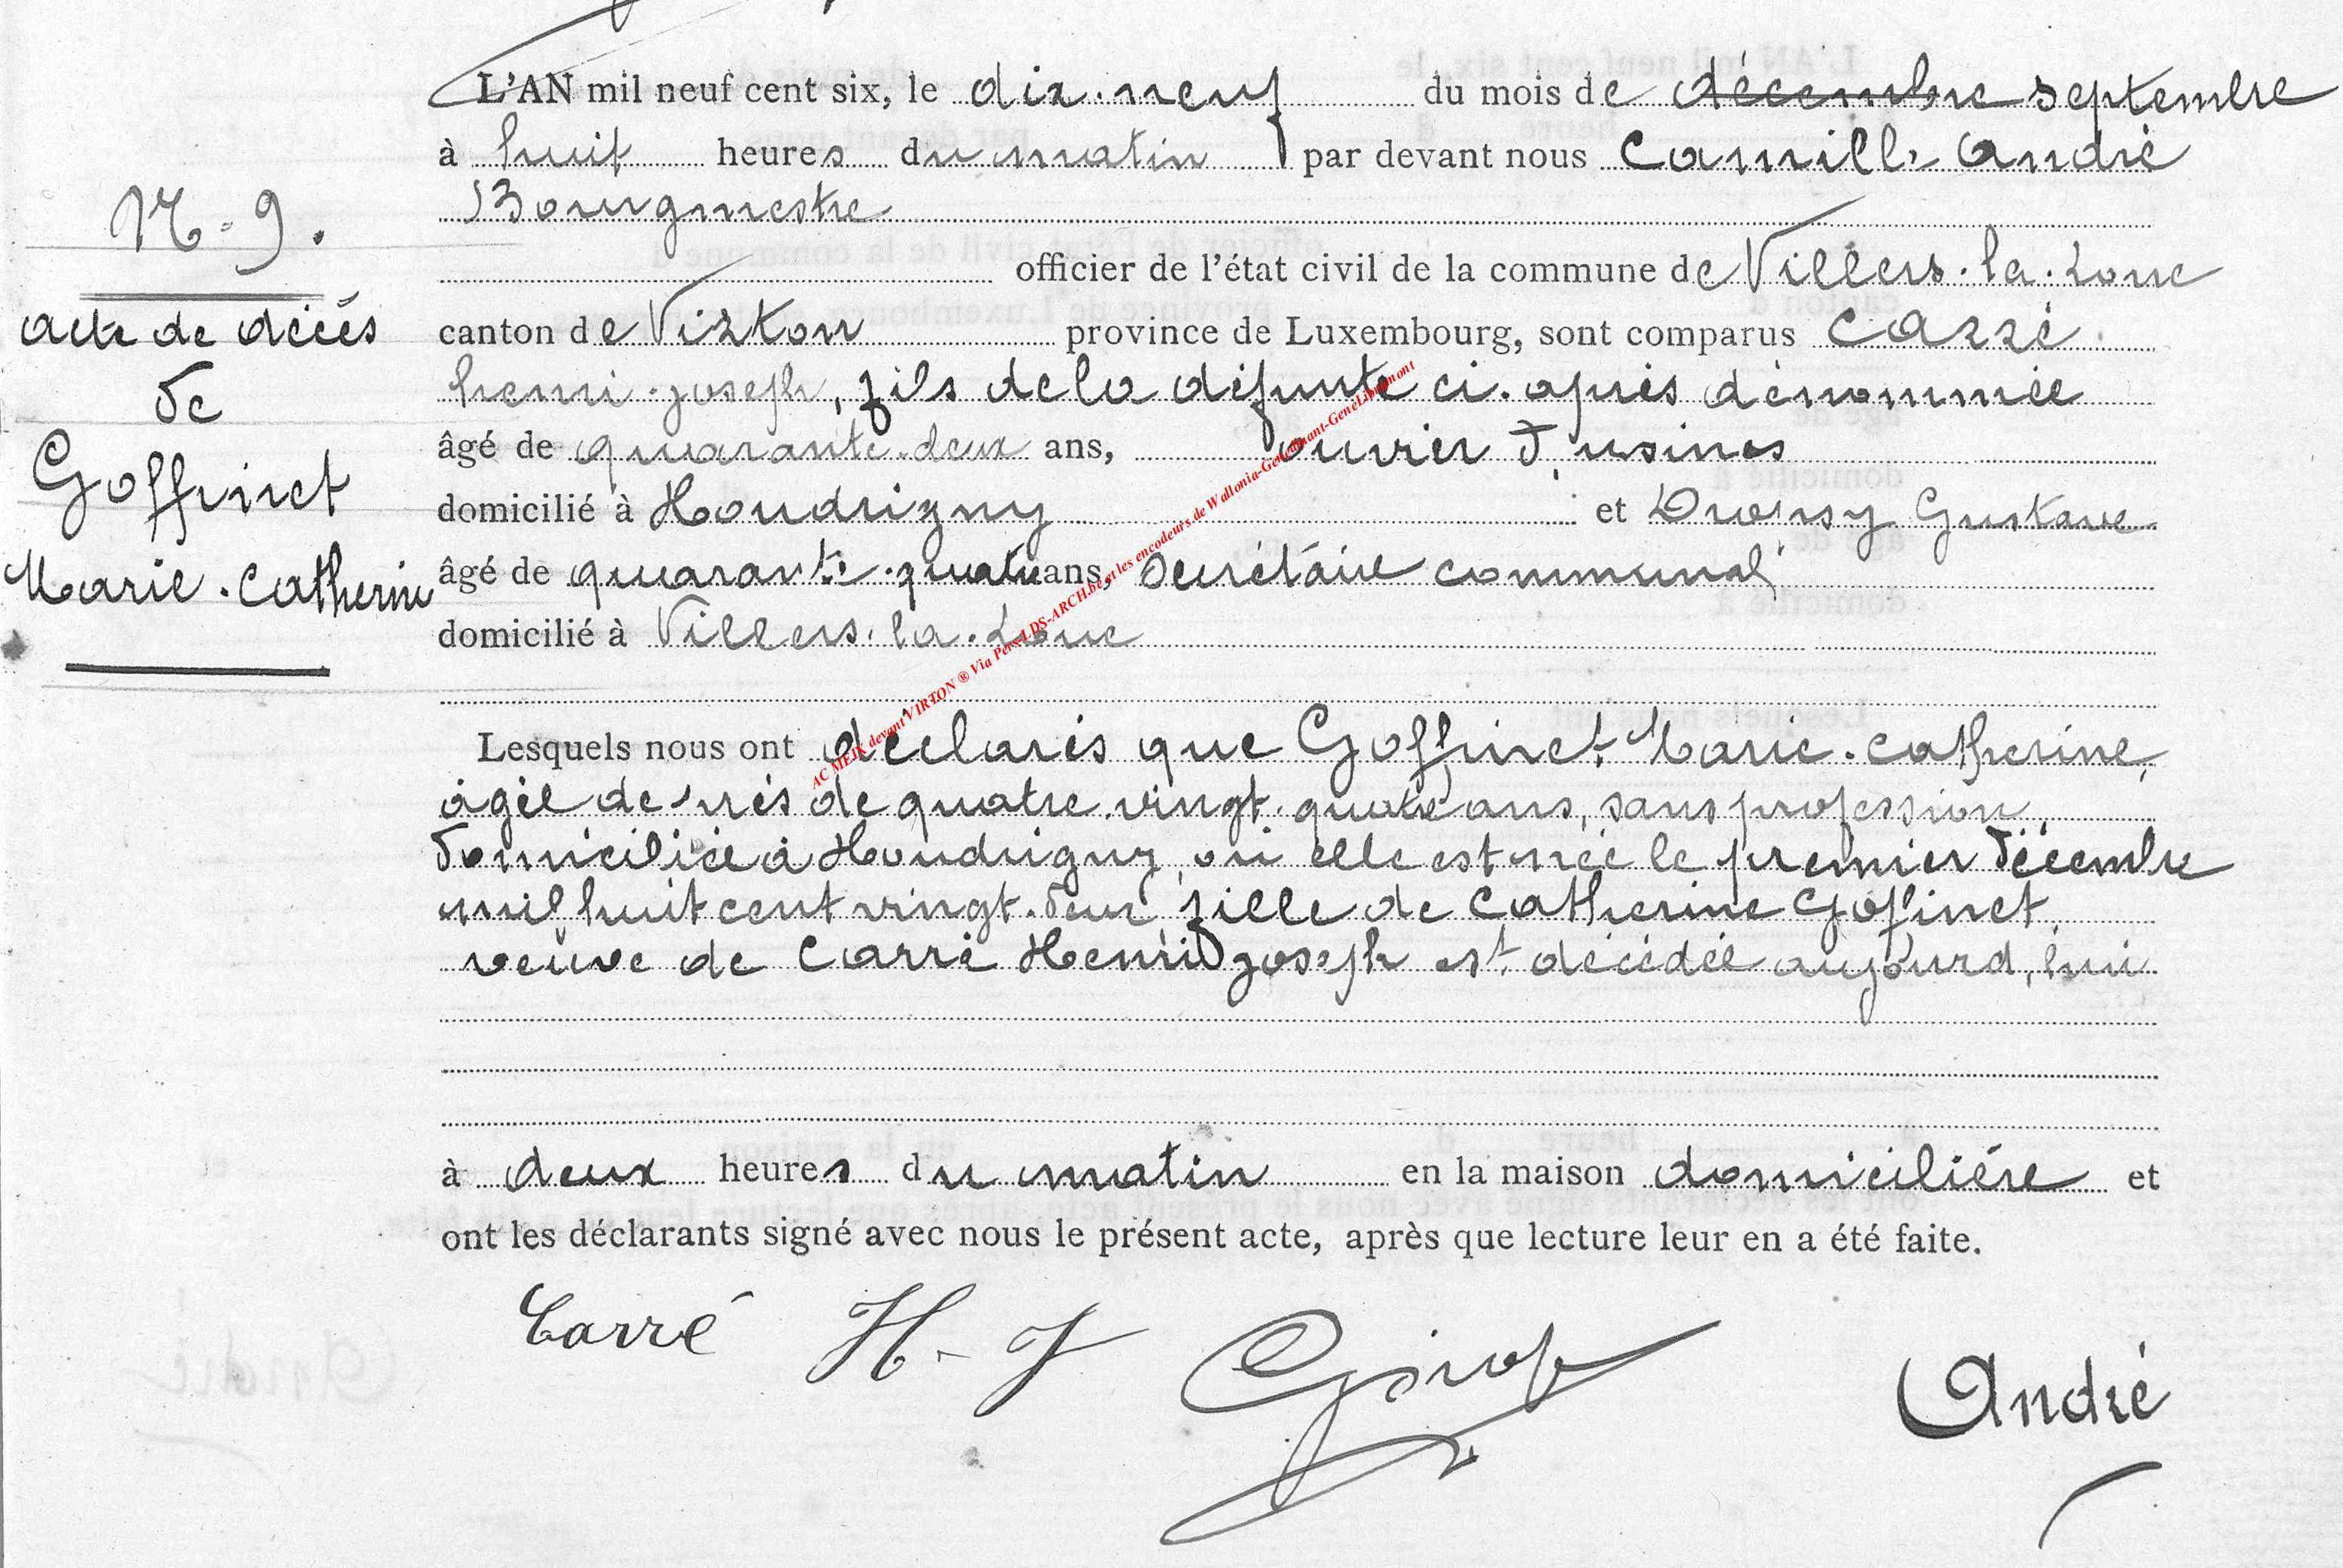 L'AN mil neuf cent six, le dix-neuf du mois de décembre septembre
à huit heures du matin par devant nous Camille André
Bourgmestre
officier de l'état civil de la commune de Villers-la-Loue
canton de Virton province de Luxembourg, sont comparus Carré
henri-joseph, fils de la défunte ci-après dénommée
âgé de quarante-deux ans, ouvrier d'usines
domicilié à Houdrigny et Gustave
âgé de quarante-quatre ans, secrétaire communal
domicilié à Villers-la-Loue
N-9.
acte de décès
de
Goffinet
Marie-Catherine
Lesquels nous ont déclarés que Goffinet Marie-Catherine,
âgée de près de quatre-vingt-quatre ans, sans profession,
domiciliée à Houdrigny, où elle est née le premier décembre
mil huit cent vingt-deux, fille de Catherine Goffinet,
veuve de Carré Henri joseph est décédée aujourd'hui
à deux heures du matin en la maison domicilière et
ont les déclarants signé avec nous le présent acte, après que lecture leur en a été faite.
Carré H-J André
AC MEIX devant VIRTON ® Via Pers-LDS-ARCH.be et les encodeurs de Wallonia-GeneDinant-GeneLibramont